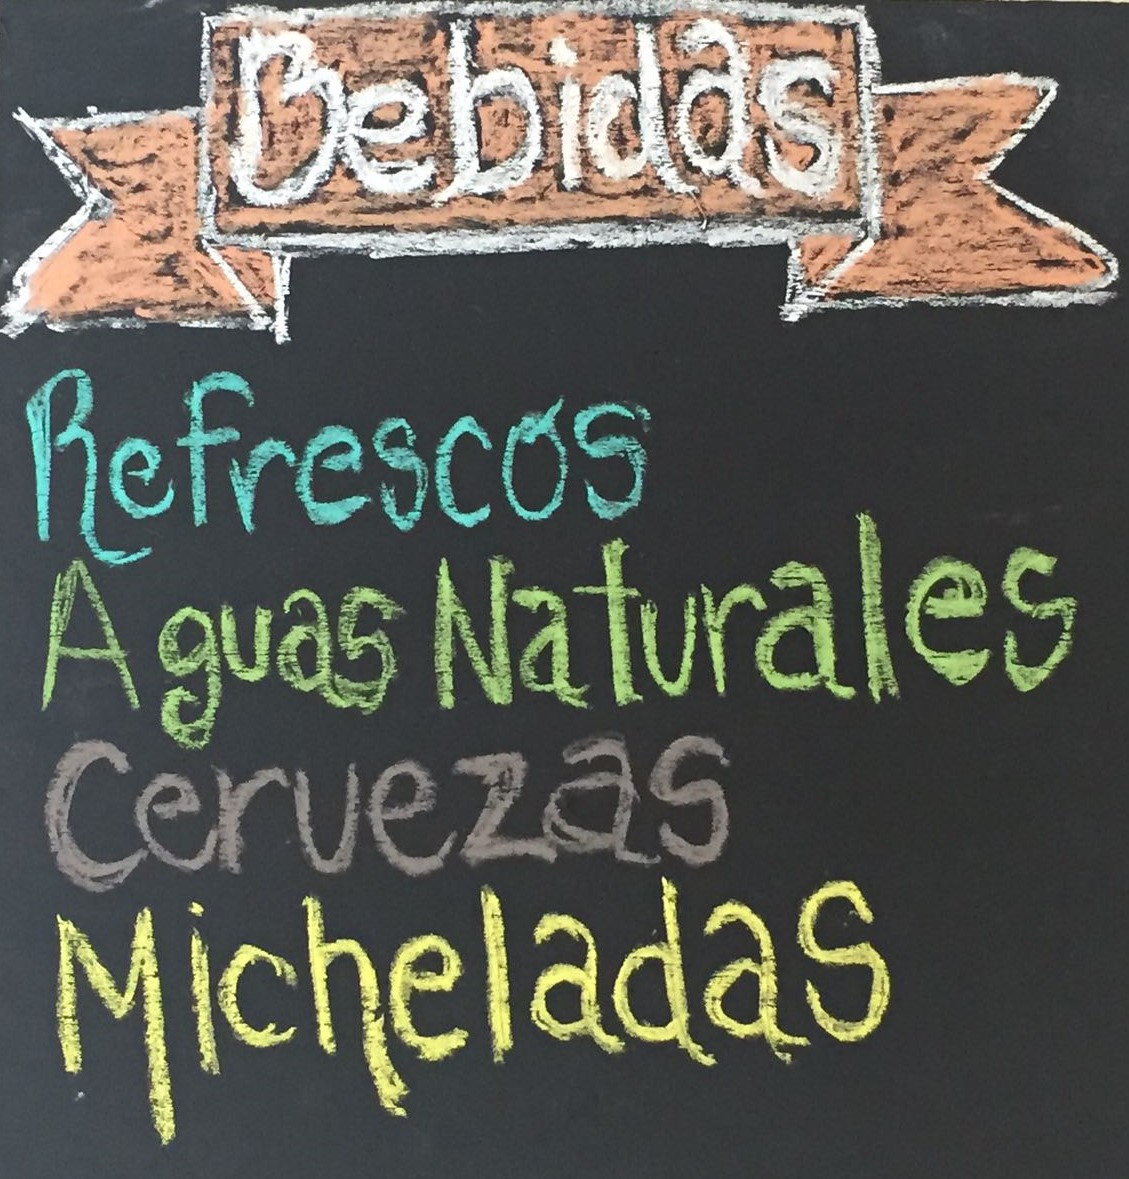 Bebidas
Refrescos
Aguas Naturales
Cervezas
Micheladas